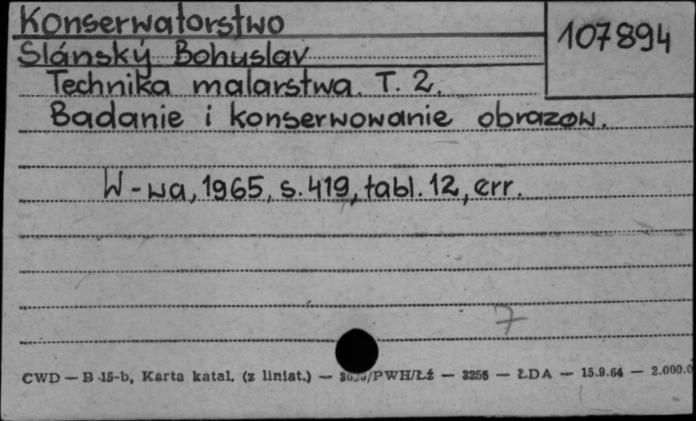 Konserwatorstwo
107894
Slánský Bohuslav
Technika malarstwa. T. 2.
Badanie i konserwowanie obrazów.
W-wa, 1965, s. 419, tabl. 12, err.
7
CWD — B-15-b, Karta katal. (z liniat.) — /PWH/Łź — 3256 — ŁDA — 15.9.64 — 2.000.0